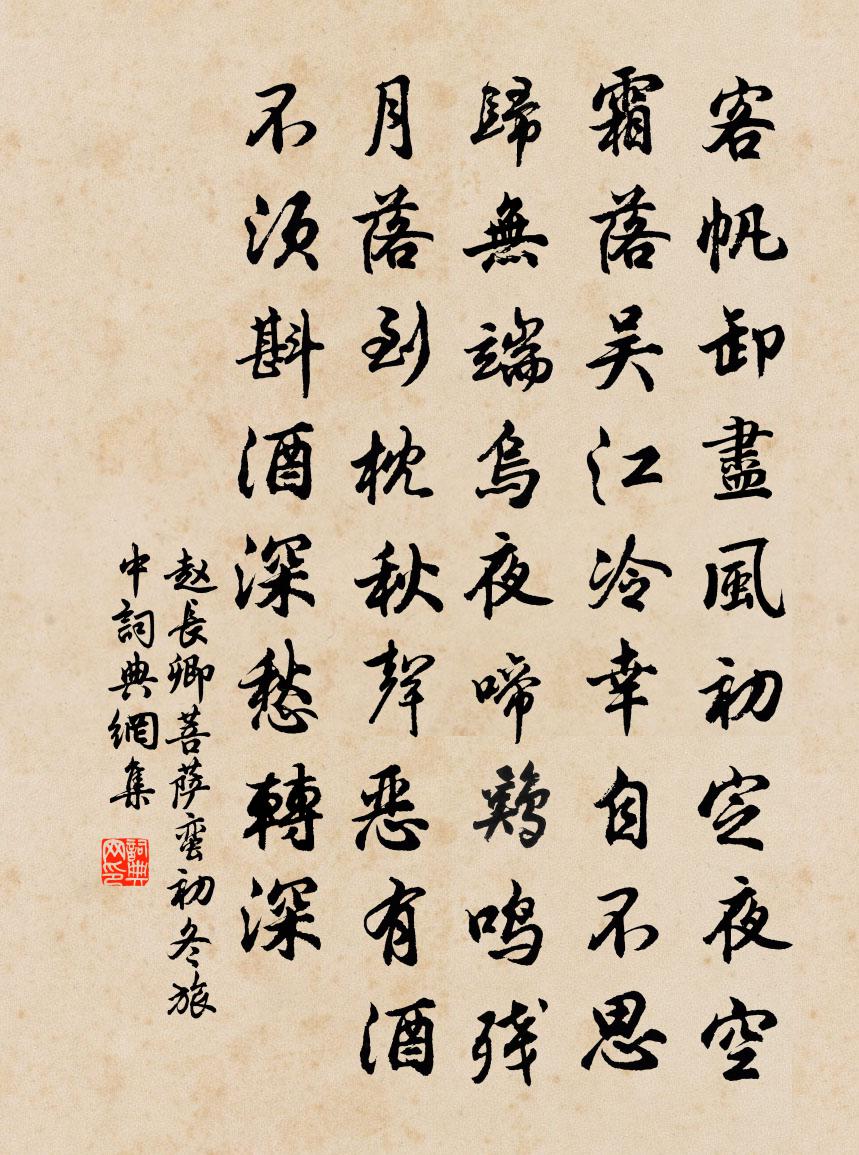 客帆卸盡風初定夜空
霜落吴江冷幸自不思
歸無端烏夜啼鷄鳴残
月落到枕秋聲惡有酒
不須斟酒深愁轉深
赵長卿菩萨蛮初冬旅
中詞典網集
詞典网印